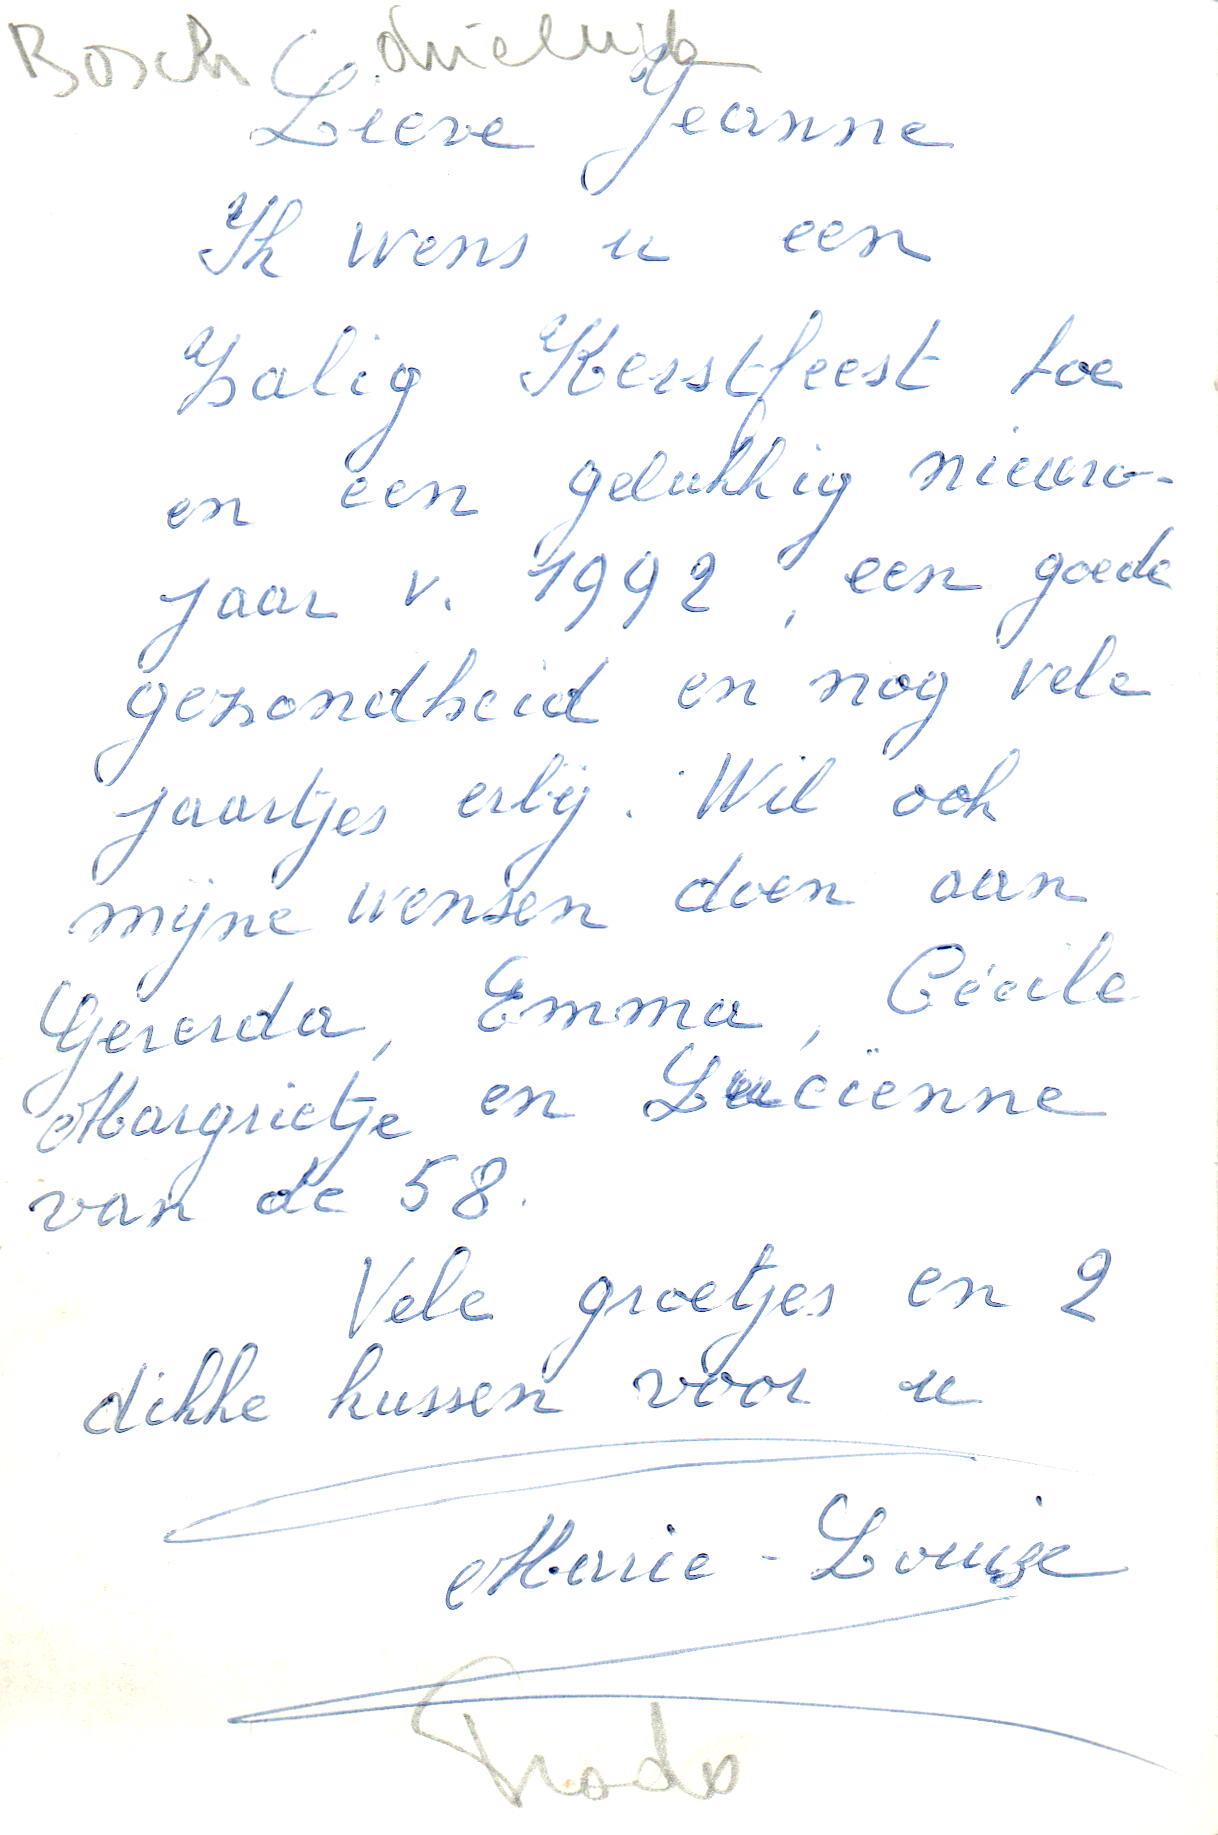 Bosch drieluik
Lieve Jeanne
Ik wens u een
Zalig Kerstfeest toe
en een gelukkig nieuw-
jaar v. 1992, een goede
gezondheid en nog vele
jaartjes erbij. Wil ook
mijne wensen doen aan
Gererda, Emma, Cécile
Margrietje en Luciënne
van de 58.
Vele groetjes en 2
dikke kussen voor u
Marie-Louise
Prado